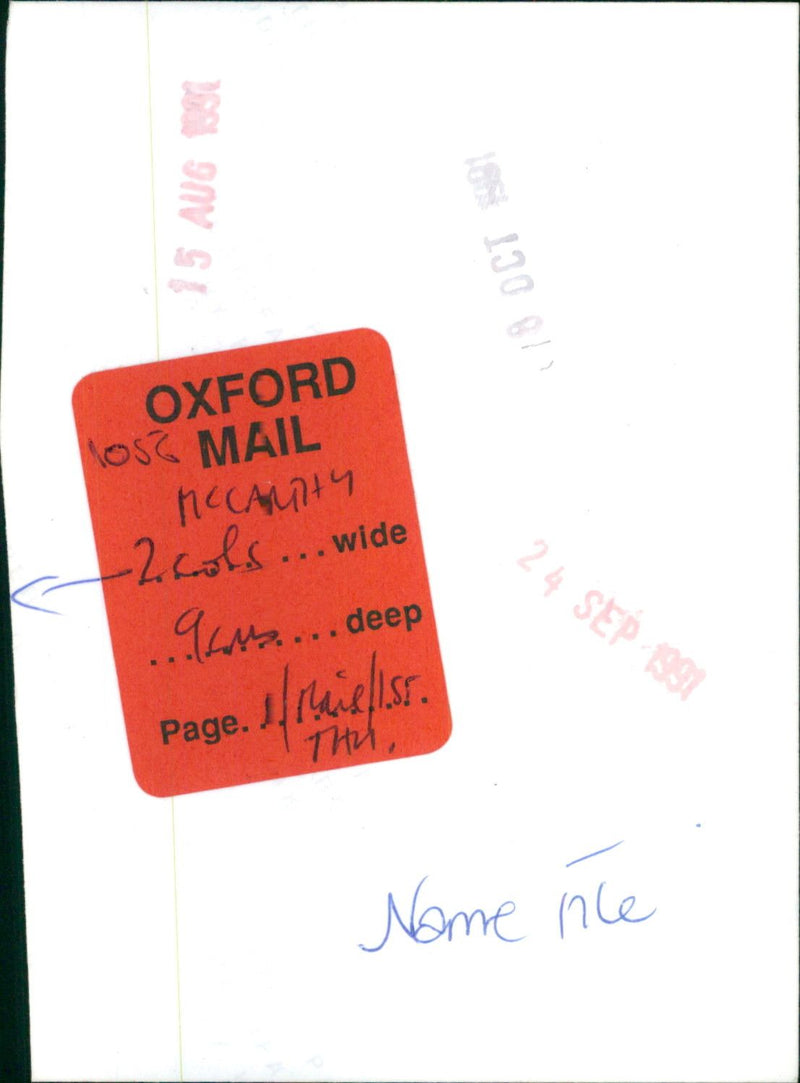 15 AUG 1991
18 OCT 1991
OXFORD
MAIL
MCCARTHY
2 cols ... wide
9cms ... deep
Page. 1/Mail/1st
THU.
24 SEP 1991
Name File